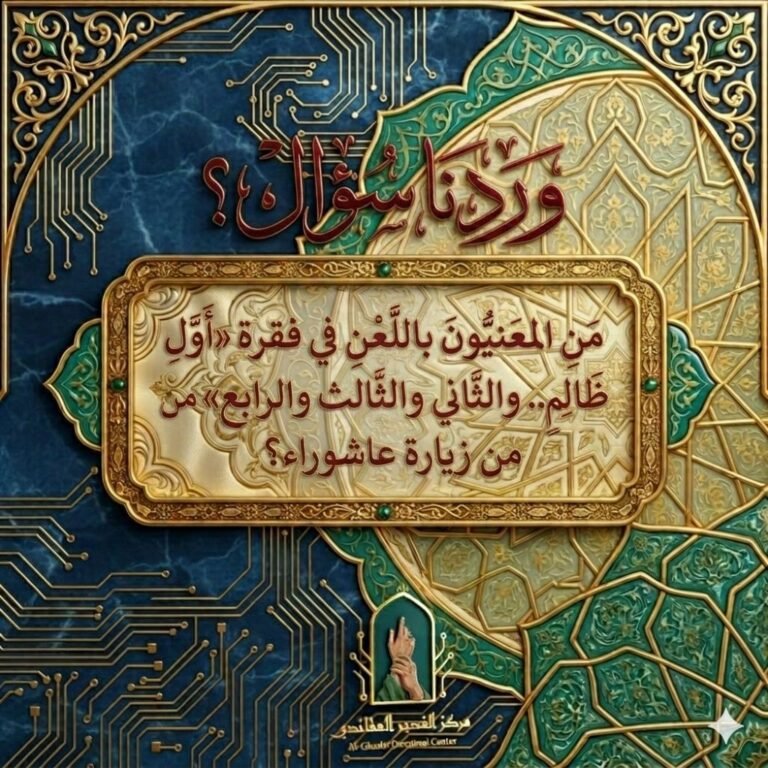 وَرَدَنَا سُؤَالْ؟
مَنِ المعَنيُّونَ باللَّعْنِ في فقرة «أَوَّلِ
ظَالِمٍ.. والثَّاني والثَّالث والرابع» من
من زيارة عاشوراء؟
مركز الغدير العقائدي
Al-Ghadir Doctrinal Center